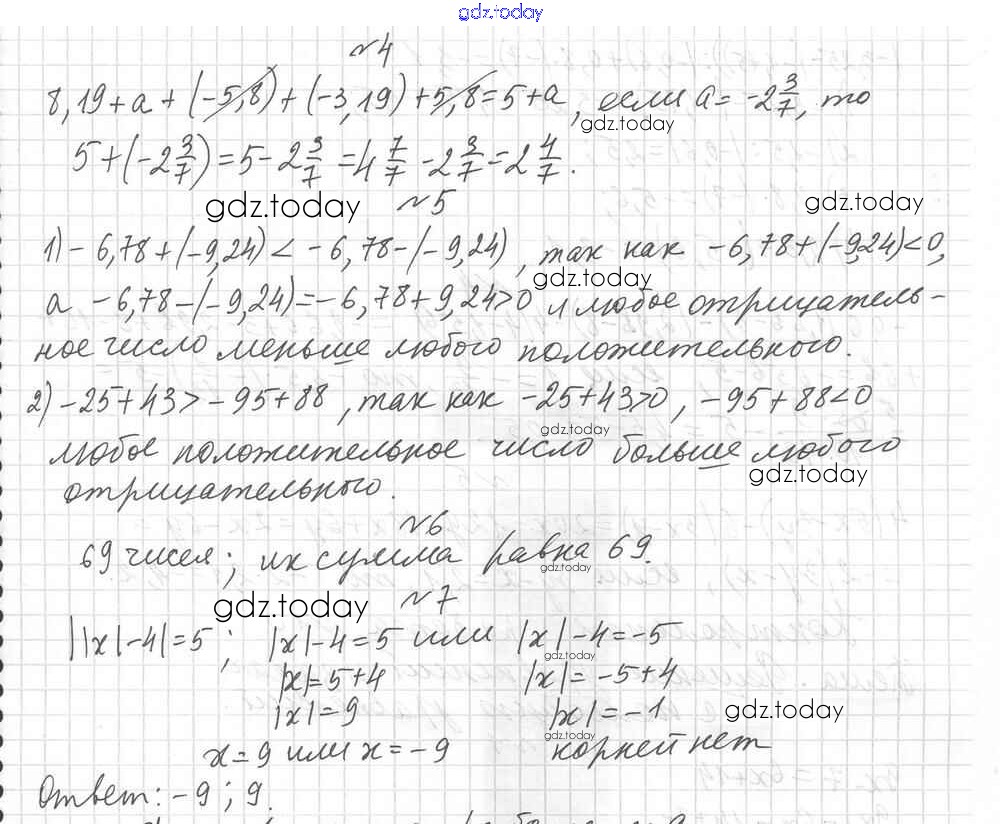 gdz.today
№4
8,19+a+(-5,8)+(-3,19)+5,8=5+a, если a=-2 3/7, то
gdz.today
5+(-2 3/7)=5-2 3/7=4 7/7-2 3/7=2 4/7.
gdz.today №5 gdz.today
1) -6,78+(-9,24)<-6,78-(-9,24), так как -6,78+(-9,24)<0,
gdz.today
а -6,78-(-9,24)=-6,78+9,24>0 и любое отрицатель-
ное число меньше любого положительного.
2) -25+43>-95+88, так как -25+43>0, -95+88<0
gdz.today
любое положительное число больше любого
gdz.today
отрицательного.
№6
69 чисел; их сумма равна 69.
gdz.today
gdz.today №7
||x|-4|=5; |x|-4=5 или |x|-4=-5
gdz.today
|x|=5+4 |x|=-5+4
|x|=9 |x|=-1 gdz.today
gdz.today
x=9 или x=-9 корней нет
Ответ: -9; 9.